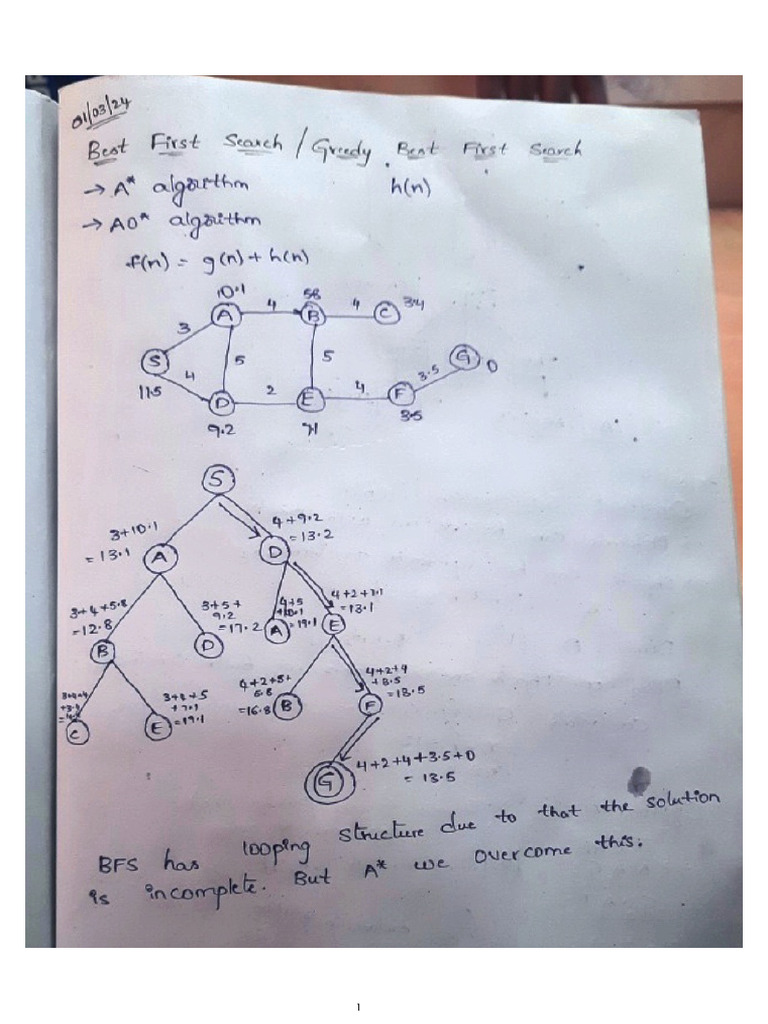 01/03/24
Best First Search / Greedy Best First Search
→ A* algorithm h(n)
→ AO* algorithm
f(n) = g(n) + h(n)
10.1 4 58 4 3.4
A B C
3
S 5 5 G 0
11.5 4 D 2 E 4 F 3.5
9.2 7.1 3.5
S
3+10.1 4+9.2
= 13.1 = 13.2
A D
3+4+5.8 3+5+ 4+5 4+2+7.1
= 12.8 9.2 +10.1 = 13.1
= 17.2 = 19.1
B D A E
3+4+4 3+4+5 4+2+5+ 4+2+4
+3.4 +7.1 5.8 +3.5
= 19.1 = 16.8 = 13.5
C E B F
G 4+2+4+3.5+0
= 13.5
BFS has looping structure due to that the solution
is incomplete. But A* we overcome this.
1